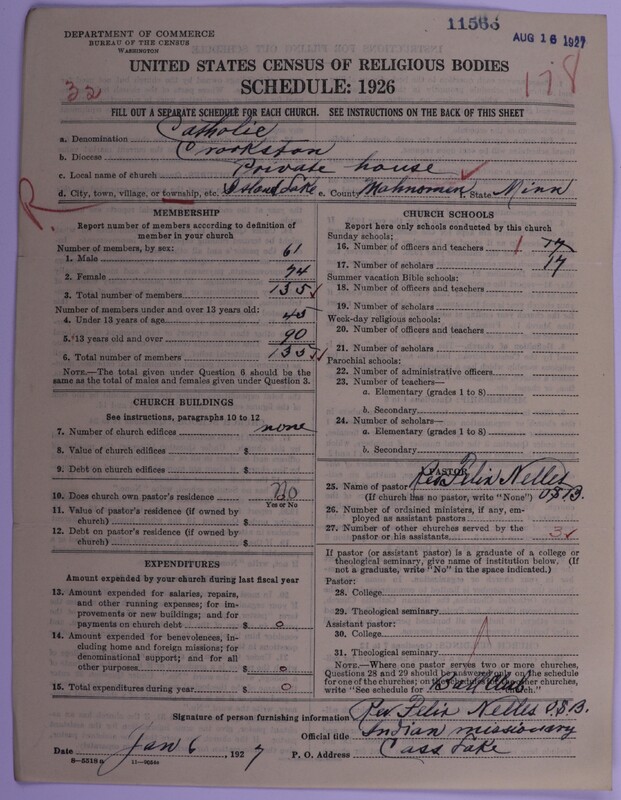 11563
AUG 16 1927
DEPARTMENT OF COMMERCE
BUREAU OF THE CENSUS
WASHINGTON
UNITED STATES CENSUS OF RELIGIOUS BODIES
SCHEDULE: 1926
32
178
FILL OUT A SEPARATE SCHEDULE FOR EACH CHURCH. SEE INSTRUCTIONS ON THE BACK OF THIS SHEET
a. Denomination Catholic
b. Diocese Crookston
c. Local name of church Private house
d. City, town, village, or township, etc. Island Lake e. County Mahnomen f. State Minn
R
MEMBERSHIP
Report number of members according to definition of
member in your church
Number of members, by sex:
1. Male 61
2. Female 74
3. Total number of members 135
Number of members under and over 13 years old:
4. Under 13 years of age 45
5. 13 years old and over 90
6. Total number of members 135
NOTE.—The total given under Question 6 should be
same as the total of males and females given under Question 3.
CHURCH BUILDINGS
See instructions, paragraphs 10 to 12
7. Number of church edifices none
8. Value of church edifices $
9. Debt on church edifices $
10. Does church own pastor's residence no
Yes or No
11. Value of pastor's residence (if owned by
church) $
12. Debt on pastor's residence (if owned by
church) $
EXPENDITURES
Amount expended by your church during last fiscal year
13. Amount expended for salaries, repairs,
and other running expenses; for im-
provements or new buildings; and for
payments on church debt $ 0
14. Amount expended for benevolences, in-
cluding home and foreign missions; for
denominational support; and for all
other purposes $ 0
15. Total expenditures during year $ 0
CHURCH SCHOOLS
Report here only schools conducted by this church
Sunday schools:
16. Number of officers and teachers 1
17. Number of scholars 17
Summer vacation Bible schools:
18. Number of officers and teachers
19. Number of scholars
Week-day religious schools:
20. Number of officers and teachers
21. Number of scholars
Parochial schools:
22. Number of administrative officers
23. Number of teachers—
a. Elementary (grades 1 to 8)
b. Secondary
24. Number of scholars—
a. Elementary (grades 1 to 8)
b. Secondary
PASTOR
25. Name of pastor Rev Felix Nelles
(If church has no pastor, write "None") O.S.B.
26. Number of ordained ministers, if any, em-
ployed as assistant pastors
27. Number of other churches served by the
pastor or his assistants 3
If pastor (or assistant pastor) is a graduate of a college or
theological seminary, give name of institution below. (If
not a graduate, write "No" in the space indicated.)
Pastor:
28. College
29. Theological seminary
Assistant pastor:
30. College
31. Theological seminary
NOTE.—Where one pastor serves two or more churches,
Questions 28 and 29 should be answered only on the schedule
for one of the churches; on the schedules for other churches,
write "See schedule for church."
Signature of person furnishing information Rev Felix Nelles O.S.B.
Official title Indian missionary
Date Jan 6, 1927 P. O. Address Cass Lake
8—5318a 11—9054a